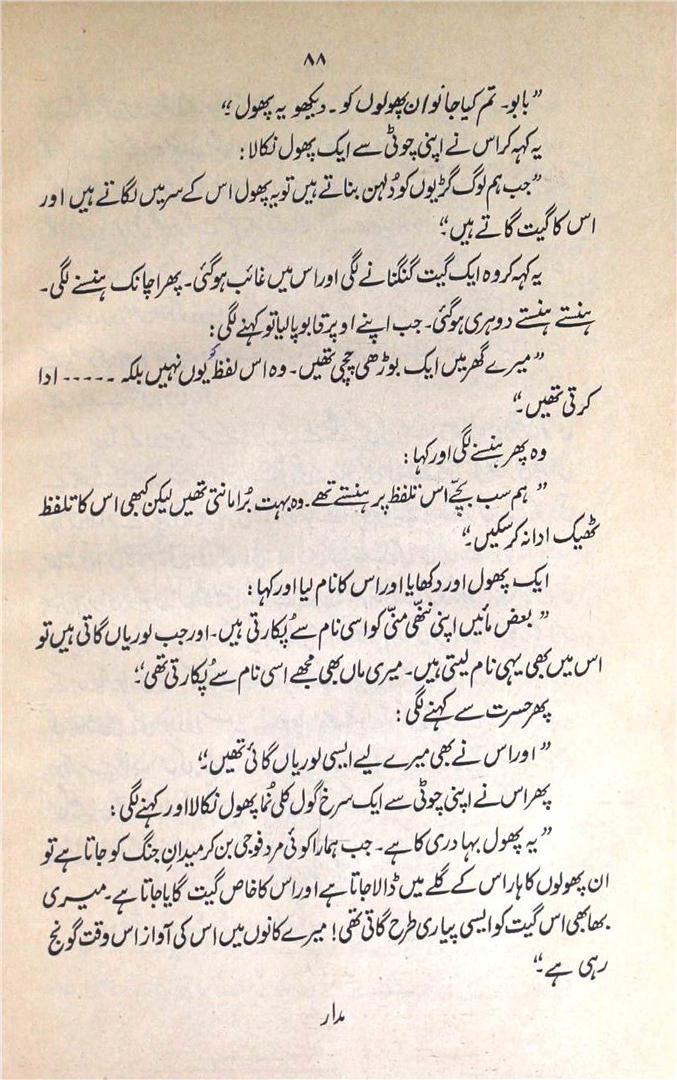 ۸۸
”بابو۔ تم کیا جانو ان پھولوں کو۔ دیکھو یہ پھول۔“
یہ کہہ کر اس نے اپنی چوٹی سے ایک پھول نکالا:
”جب ہم لوگ گڑیوں کو دُلہن بناتے ہیں تو یہ پھول اس کے سر میں لگاتے ہیں اور
اس کا گیت گاتے ہیں۔“
یہ کہہ کر وہ ایک گیت گنگنانے لگی اور اس میں غائب ہو گئی۔ پھر اچانک ہنسنے لگی۔
ہنستے ہنستے دوہری ہو گئی۔ جب اپنے اوپر قابو پا لیا تو کہنے لگی:
”میرے گھر میں ایک بوڑھی چچی تھیں۔ وہ اس لفظ کو یوں نہیں بلکہ ۔۔۔۔۔ ادا
کرتی تھیں۔“
وہ پھر ہنسنے لگی اور کہا:
”ہم سب بچّے اس تلفظ پر ہنستے تھے۔ وہ بہت بُرا مانتی تھیں لیکن کبھی اس کا تلفظ
ٹھیک ادا نہ کر سکیں۔“
ایک پھول اور دکھایا اور اس کا نام لیا اور کہا:
”بعض مائیں اپنی ننھّی منّی کو اسی نام سے پُکارتی ہیں۔ اور جب لوریاں گاتی ہیں تو
اس میں بھی یہی نام لیتی ہیں۔ میری ماں بھی مجھے اسی نام سے پُکارتی تھی۔“
پھر حسرت سے کہنے لگی:
”اور اس نے بھی میرے لیے ایسی لوریاں گائی تھیں۔“
پھر اس نے اپنی چوٹی سے ایک سرخ گول کلی نُما پھول نکالا اور کہنے لگی:
”یہ پھول بہادری کا ہے۔ جب ہمارا کوئی مرد فوجی بن کر میدانِ جنگ کو جاتا ہے تو
ان پھولوں کا ہار اس کے گلے میں ڈالا جاتا ہے اور اس کا خاص گیت گایا جاتا ہے۔ میری
بھابھی اس گیت کو ایسی پیاری طرح گاتی تھی! میرے کانوں میں اس کی آواز اس وقت گونج
رہی ہے۔“
مدار